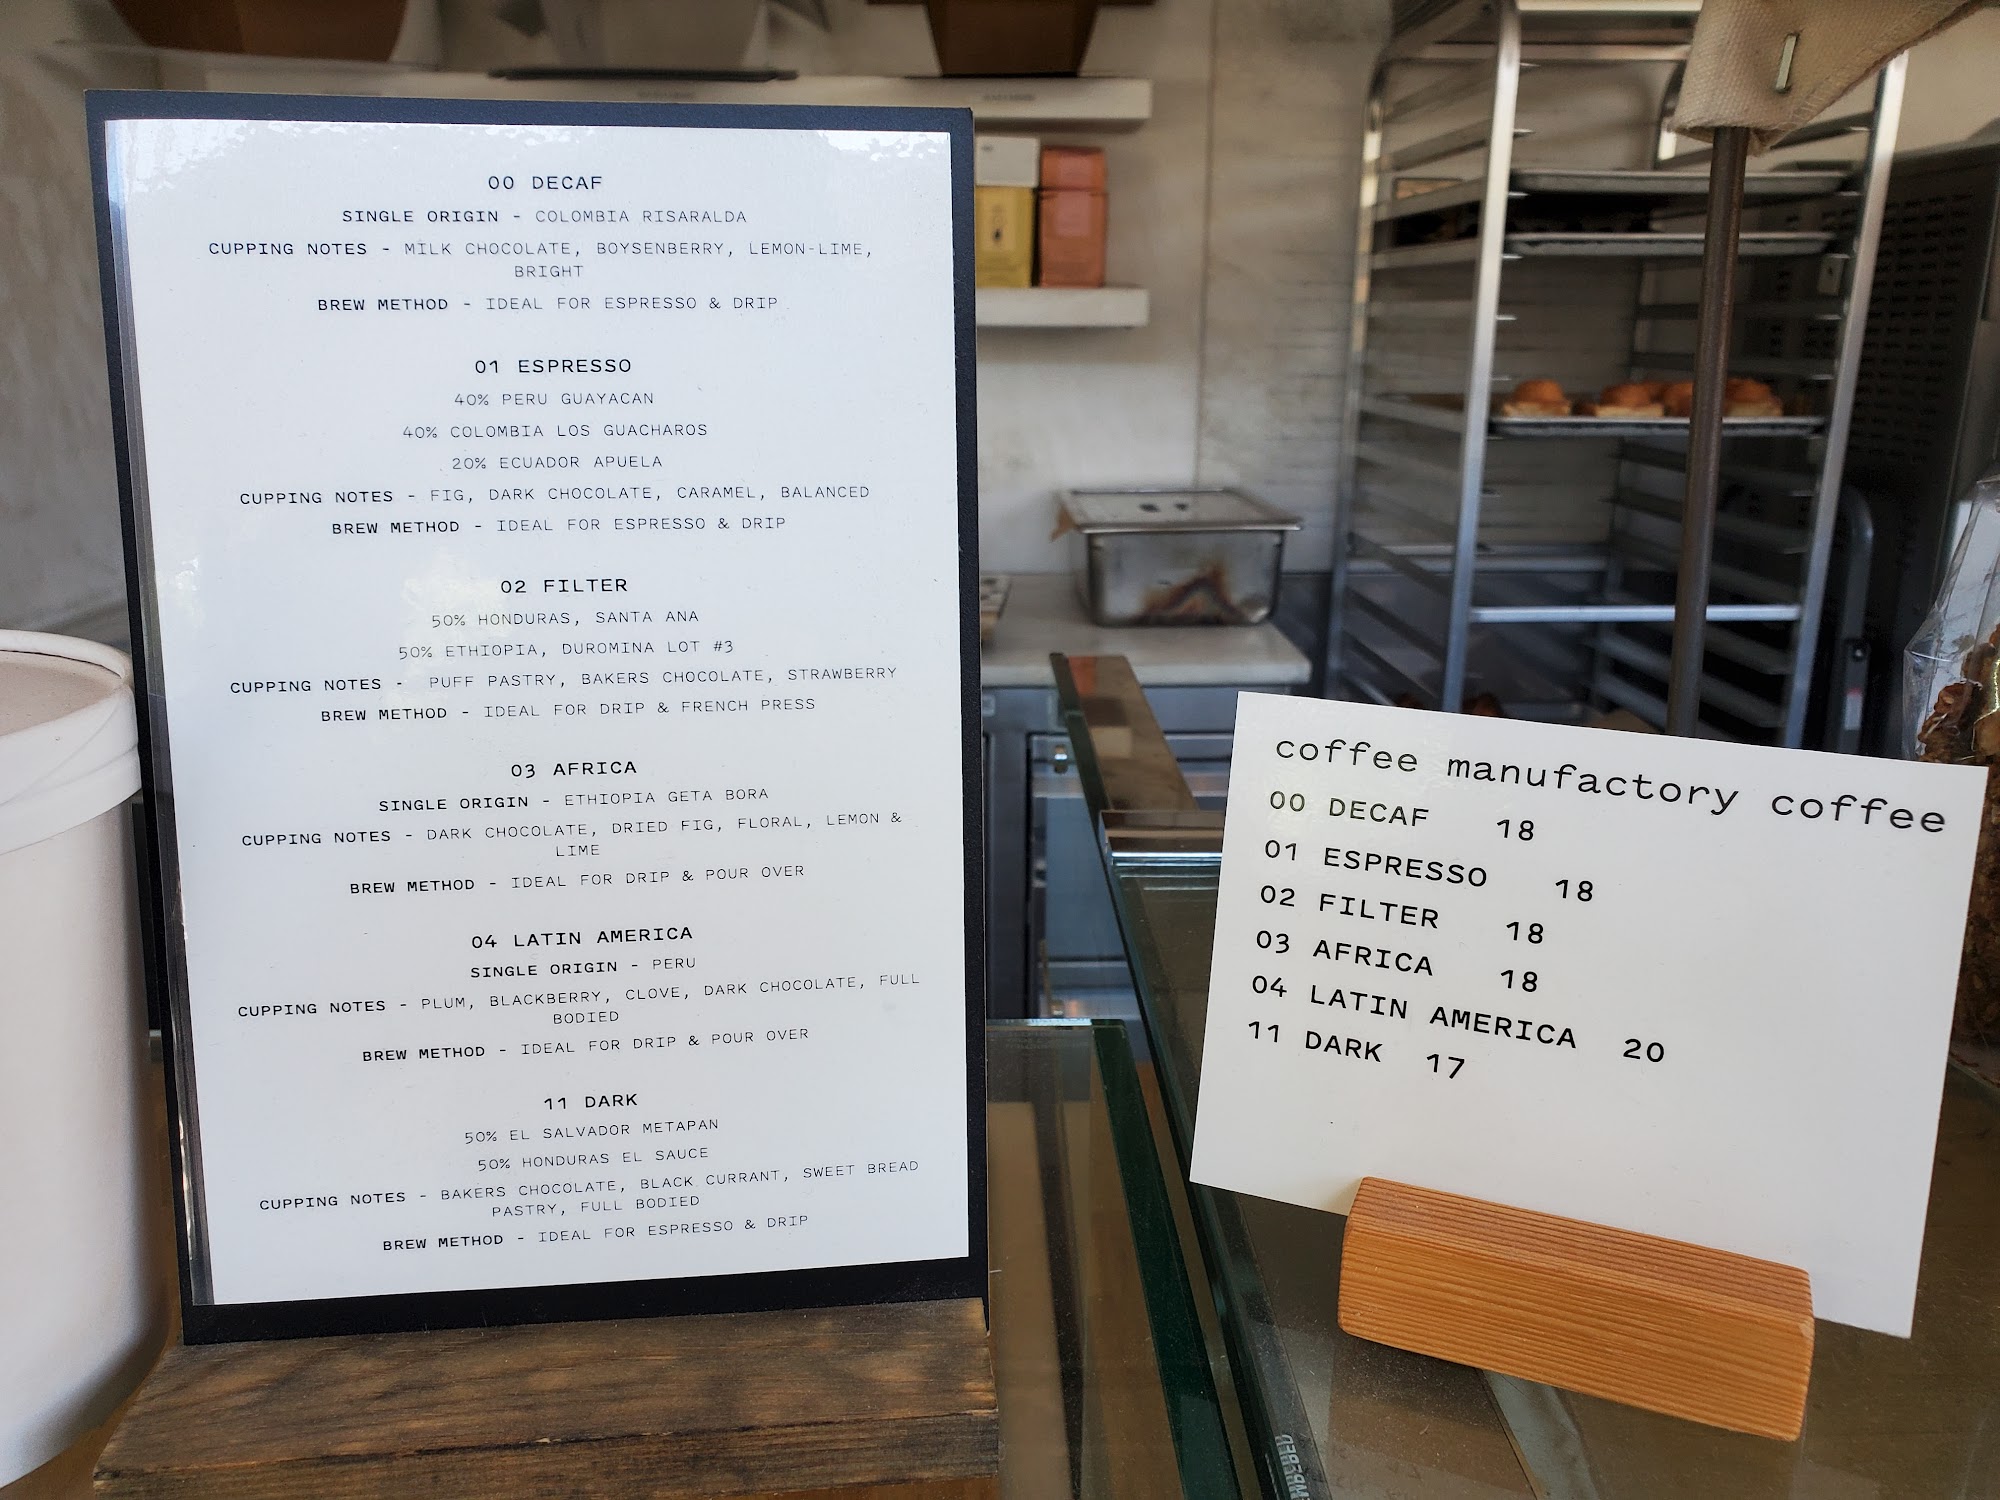 00 DECAF
SINGLE ORIGIN - COLOMBIA RISARALDA
CUPPING NOTES - MILK CHOCOLATE, BOYSENBERRY, LEMON-LIME,
BRIGHT
BREW METHOD - IDEAL FOR ESPRESSO & DRIP
01 ESPRESSO
40% PERU GUAYACAN
40% COLOMBIA LOS GUACHAROS
20% ECUADOR APUELA
CUPPING NOTES - FIG, DARK CHOCOLATE, CARAMEL, BALANCED
BREW METHOD - IDEAL FOR ESPRESSO & DRIP
02 FILTER
50% HONDURAS, SANTA ANA
50% ETHIOPIA, DUROMINA LOT #3
CUPPING NOTES - PUFF PASTRY, BAKERS CHOCOLATE, STRAWBERRY
BREW METHOD - IDEAL FOR DRIP & FRENCH PRESS
03 AFRICA
SINGLE ORIGIN - ETHIOPIA GETA BORA
CUPPING NOTES - DARK CHOCOLATE, DRIED FIG, FLORAL, LEMON &
LIME
BREW METHOD - IDEAL FOR DRIP & POUR OVER
04 LATIN AMERICA
SINGLE ORIGIN - PERU
CUPPING NOTES - PLUM, BLACKBERRY, CLOVE, DARK CHOCOLATE, FULL
BODIED
BREW METHOD - IDEAL FOR DRIP & POUR OVER
11 DARK
50% EL SALVADOR METAPAN
50% HONDURAS EL SAUCE
CUPPING NOTES - BAKERS CHOCOLATE, BLACK CURRANT, SWEET BREAD
PASTRY, FULL BODIED
BREW METHOD - IDEAL FOR ESPRESSO & DRIP
coffee manufactory coffee
00 DECAF 18
01 ESPRESSO 18
02 FILTER 18
03 AFRICA 18
04 LATIN AMERICA 20
11 DARK 17